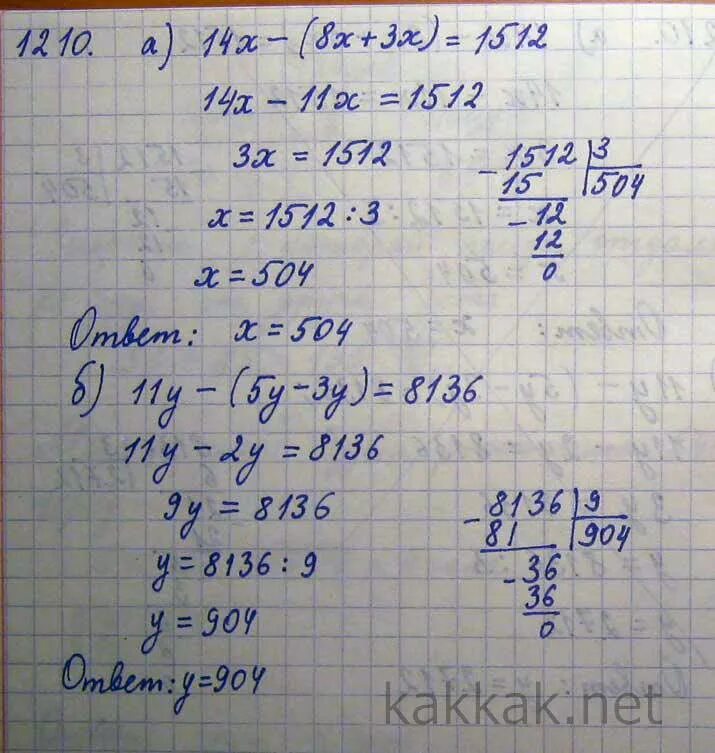 1210. а) 14x − (8x + 3x) = 1512
14x − 11x = 1512
3x = 1512
x = 1512 : 3
x = 504
− 1512 | 3
15 | 504
− 12
12
0
Ответ: x = 504
б) 11y − (5y − 3y) = 8136
11y − 2y = 8136
9y = 8136
y = 8136 : 9
y = 904
− 8136 | 9
81 | 904
− 36
36
0
Ответ: y = 904
kakkak.net